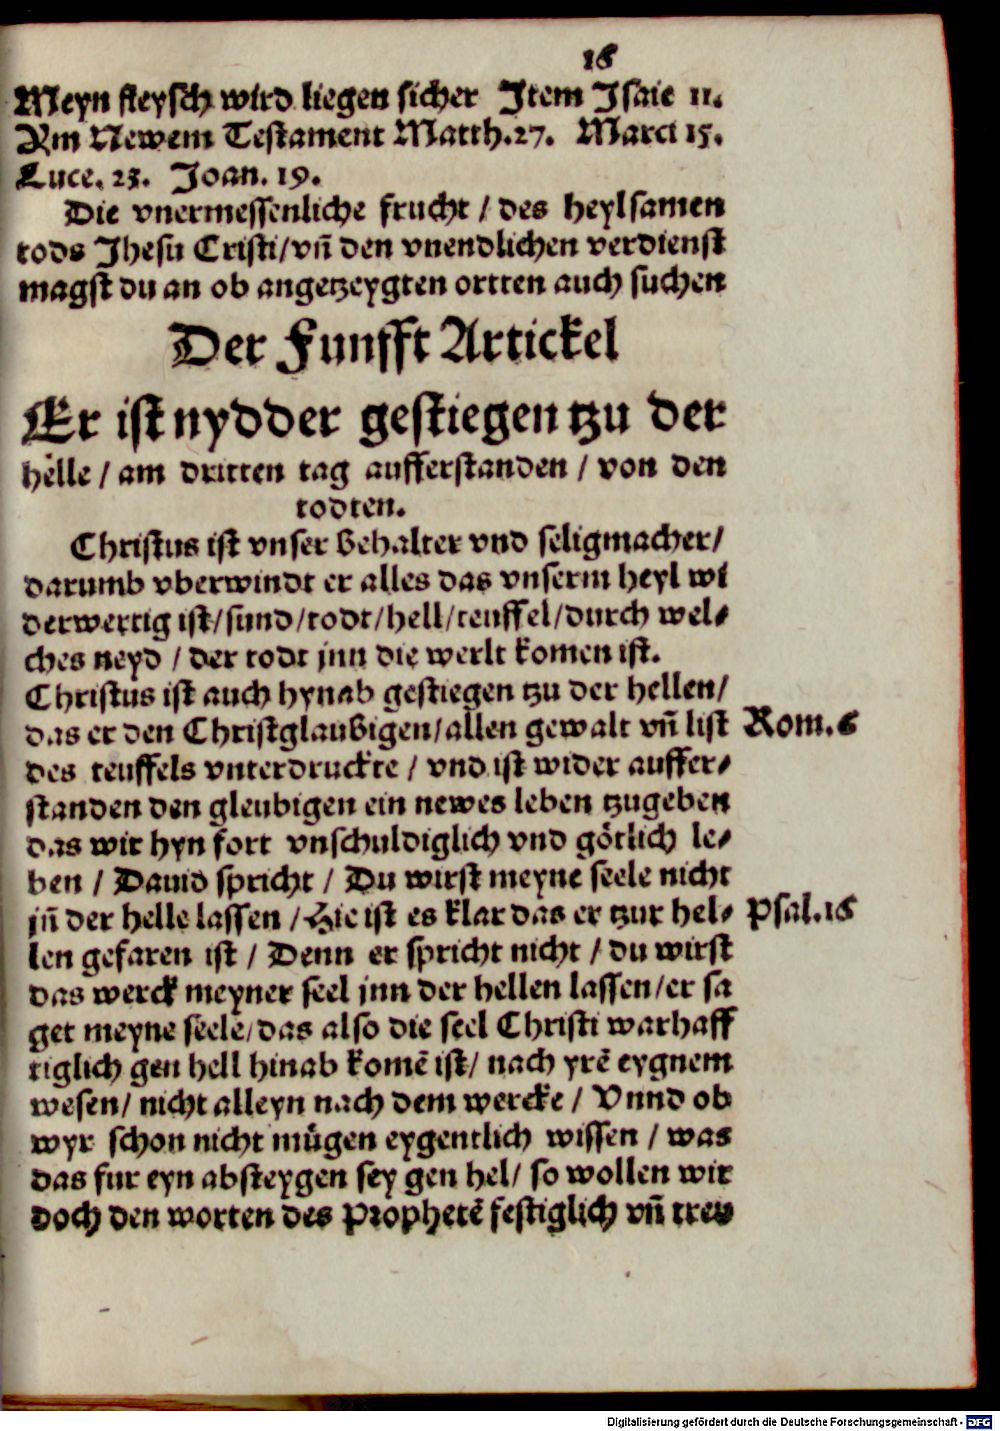 16
Meyn fleysch wird liegen sicher Item Isaie 11.
Am Newem Testament Matth.27. Marci 15.
Luce. 23. Joan. 19.
Die vnermessenliche frucht / des heylsamen
tods Jhesu Cristi/vñ den vnendlichen verdienst
magst du an ob angetzeygten ortten auch suchen
Der Funfft Artickel
Er ist nydder gestiegen tzu der
helle / am dritten tag aufferstanden / von den
todten.
Christus ist vnser Behalter vnd seligmacher/
darumb vberwindt er alles das vnserm heyl wi
derwertig ist/sund/todt/hell/teuffel/durch wel⸗
ches neyd / der todt jnn die werlt komen ist.
Christus ist auch hynab gestiegen tzu der hellen/
das er den Christglaubigen/allen gewalt vñ list Rom.6
des teuffels vnterdruckte / vnd ist wider auffer⸗
standen den gleubigen ein newes leben tzugeben
das wir hyn fort vnschuldiglich vnd götlich le⸗
ben / Dauid spricht / Du wirst meyne seele nicht
jñ der helle lassen / Hie ist es klar das er tzur hel⸗ Psal.16
len gefaren ist / Denn er spricht nicht / du wirst
das werck meyner seel jnn der hellen lassen/er sa
get meyne seele/das also die seel Christi warhaff
tiglich gen hell hinab komē ist/ nach yrē eygnem
wesen/ nicht alleyn nach dem wercke / Vnnd ob
wyr schon nicht mügen eygentlich wissen / was
das fur eyn absteygen sey gen hel/ so wollen wir
doch den worten des Prophetē festiglich vñ trew
Digitalisierung gefördert durch die Deutsche Forschungsgemeinschaft - DFG